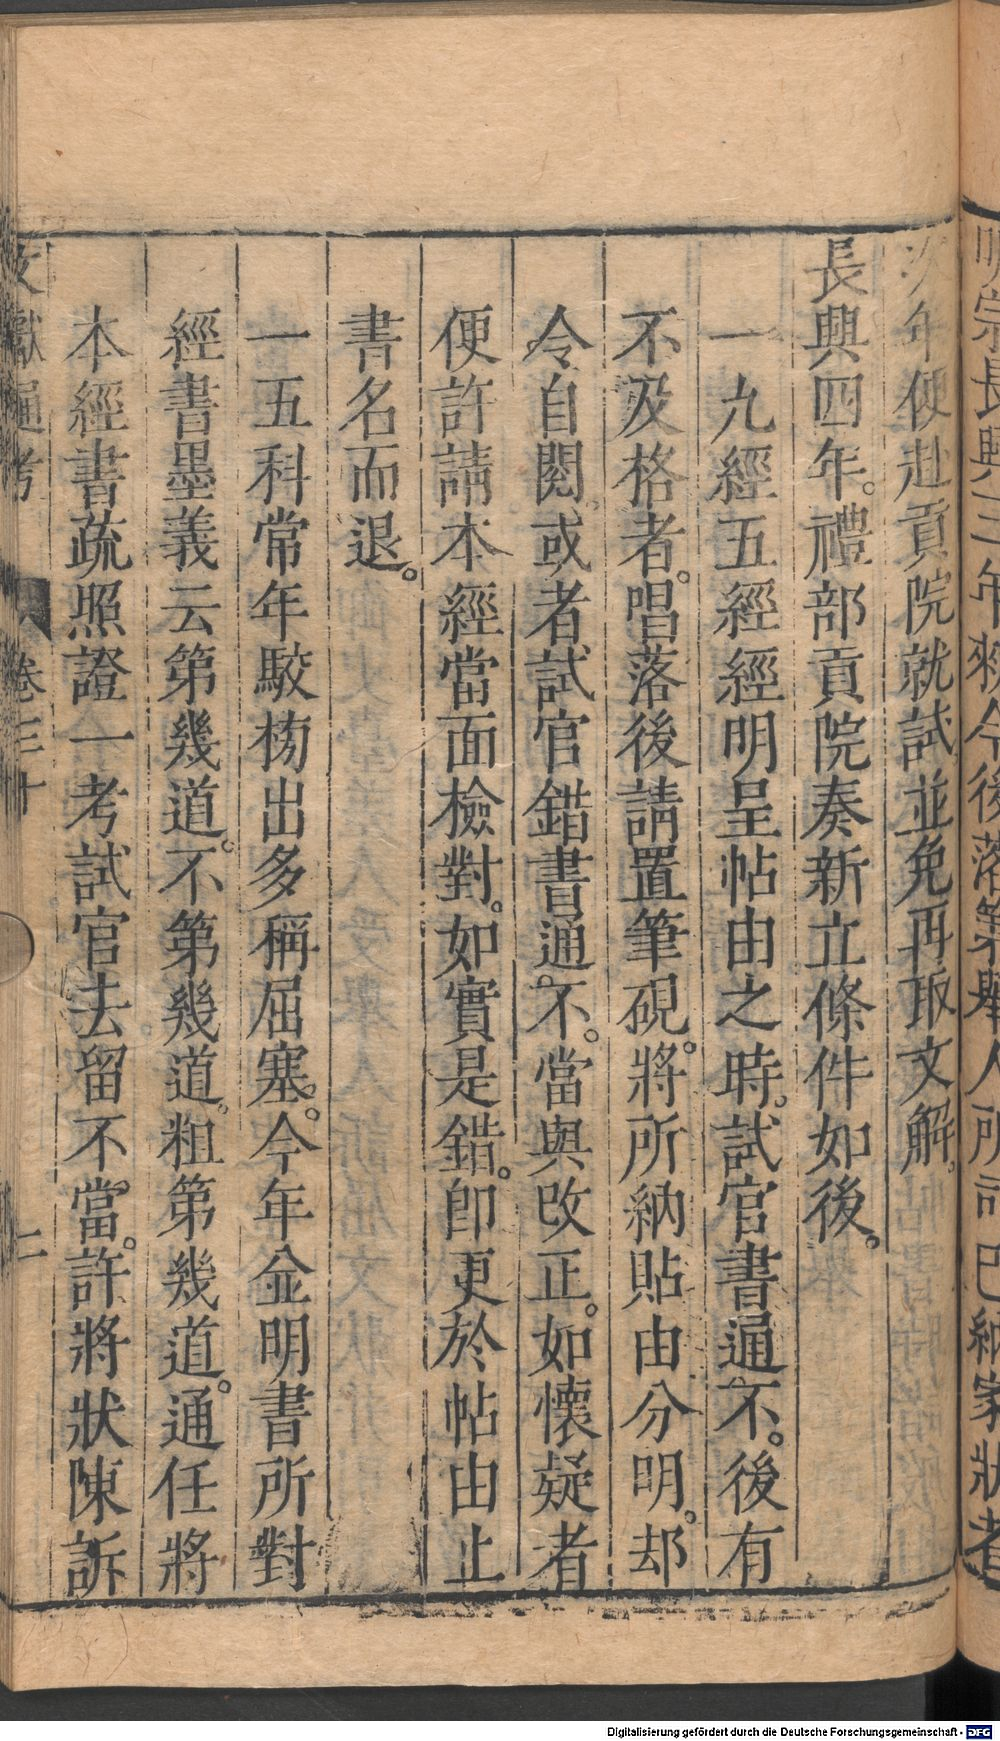 明宗長興三年敕今後落第舉人所司已納家狀者
次年便赴貢院就試並免再取文解。
長興四年。禮部貢院奏新立條件如後。
一九經五經經明呈帖由之時。試官書通不。後有
不及格者。唱落後請置筆硯。將所納貼由分明。却
令自閱。或者試官錯書通。不。當與改正。如懷疑者
便許請本經當面檢對。如實是錯。卽更於帖由止
書名而退。
一五科常年駮榜出多稱屈塞。今年並明書所對
經書墨義云第幾道。不第幾道。粗第幾道。通任將
本經書疏照證一考試官去留不當。許將狀陳訴
文獻通考 卷三十 二
Digitalisierung gefördert durch die Deutsche Forschungsgemeinschaft - DFG